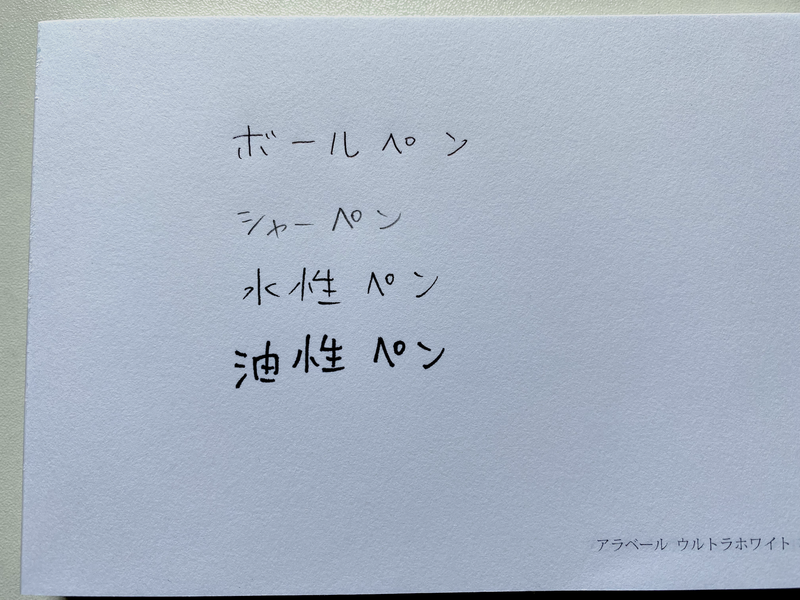 ボールペン
シャーペン
水性ペン
油性ペン
アラベール ウルトラホワイト